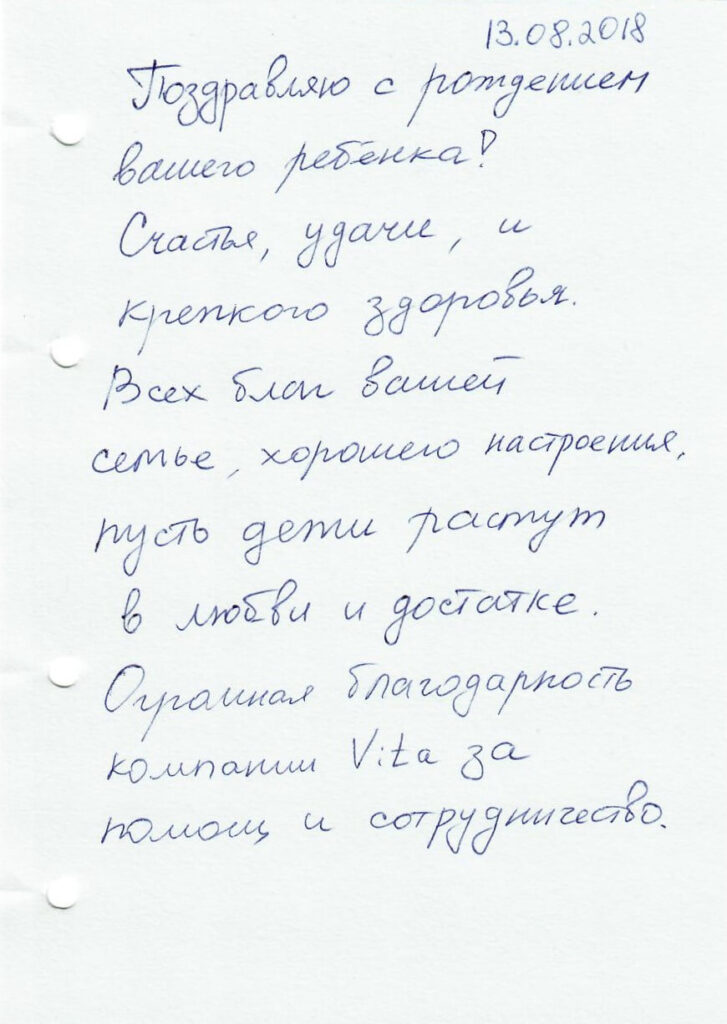 13.08.2018
Поздравляю с рождением
вашего ребенка!
Счастья, удачи, и
крепкого здоровья.
Всех благ вашей
семье, хорошего настроения,
пусть дети растут
в любви и достатке.
Огромная благодарность
компании Vita за
помощ и сотрудничество.